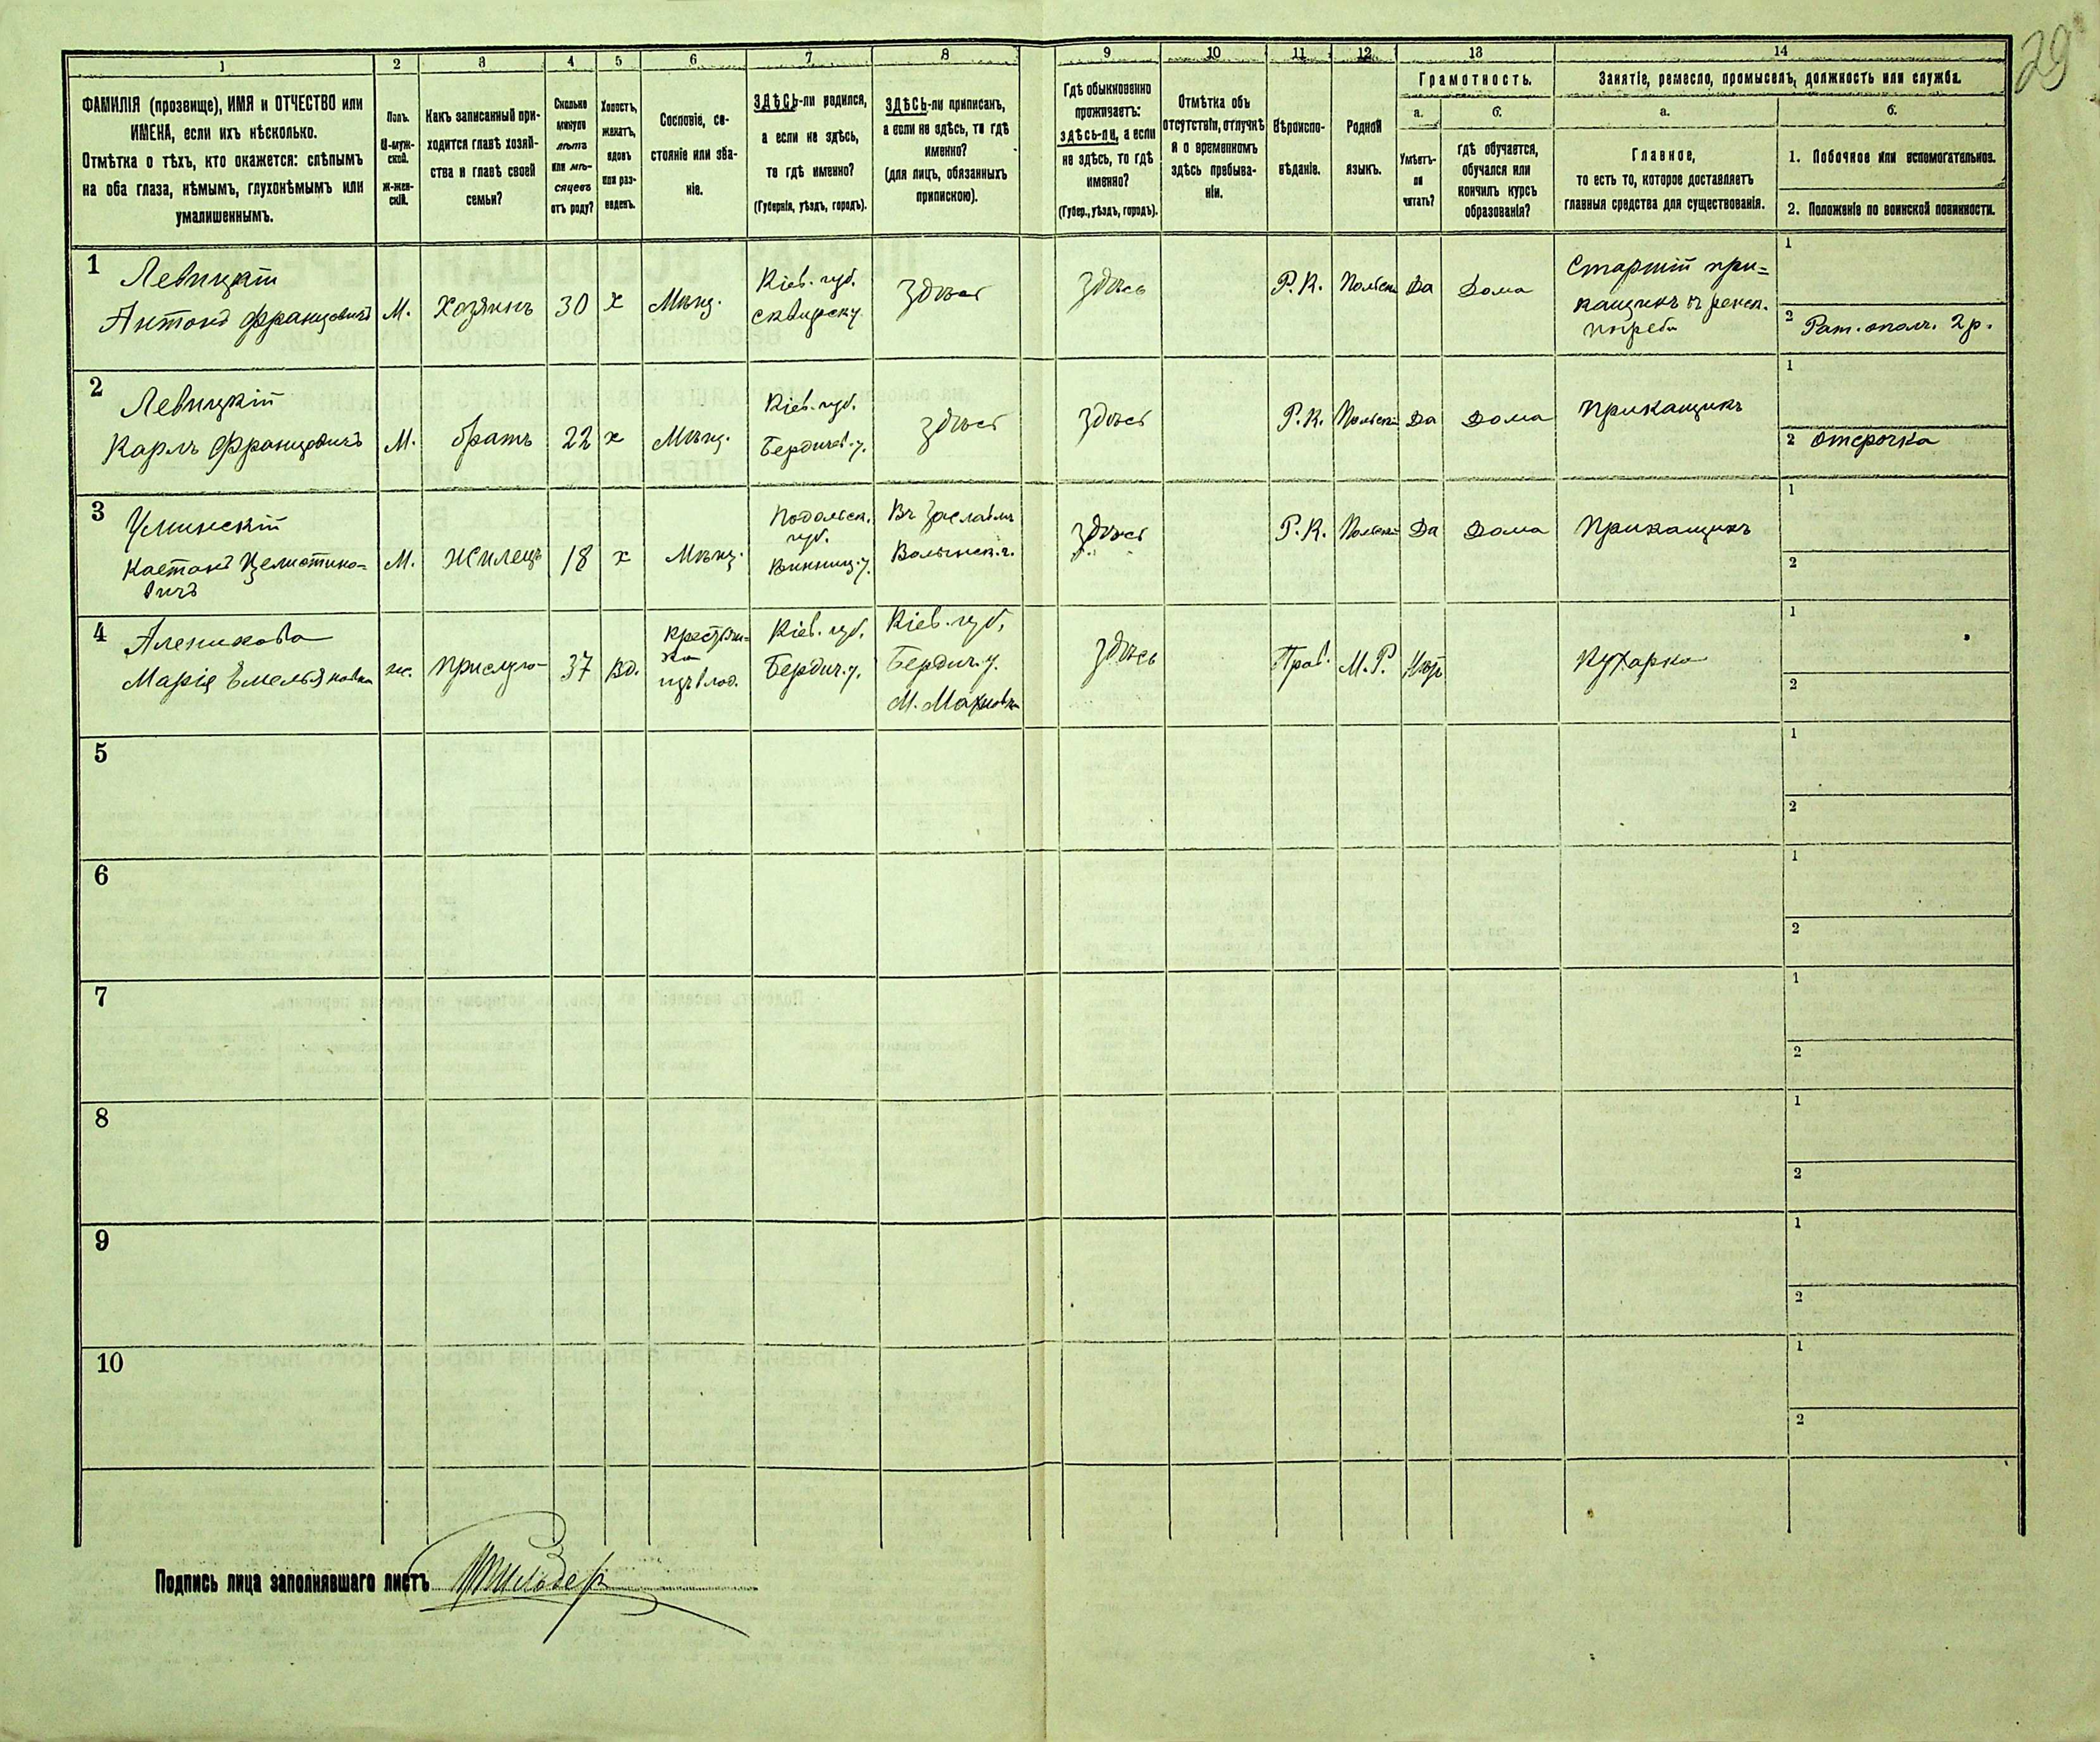 29
1 2 3 4 5 6 7 8 9 10 11 12 13 14
ФАМИЛІЯ (прозвище), ИМЯ и ОТЧЕСТВО или
ИМЕНА, если ихъ нѣсколько.
Отмѣтка о тѣхъ, кто окажется: слѣпымъ
на оба глаза, нѣмымъ, глухонѣмымъ или
умалишеннымъ.
Полъ.
М-муж-
ской.
Ж-жен-
скій.
Какъ записанный при-
ходится главѣ хозяй-
ства и главѣ своей
семьи?
Сколько
минуло
лѣтъ
или мѣ-
сяцевъ
отъ роду?
Холостъ,
женатъ,
вдовъ
или раз-
веденъ.
Сословіе, со-
стояніе или зва-
ніе.
ЗДѢСЬ-ли родился,
а если не здѣсь,
то гдѣ именно?
(Губернія, уѣздъ, городъ).
ЗДѢСЬ-ли приписанъ,
а если не здѣсь, то гдѣ
именно?
(для лицъ, обязанныхъ
припискою).
Гдѣ обыкновенно
проживаетъ:
здѣсь-ли, а если
не здѣсь, то гдѣ
именно?
(Губер., уѣздъ, городъ).
Отмѣтка объ
отсутствіи, отлучкѣ
и о временномъ
здѣсь пребыва-
ніи.
Вѣроиспо-
вѣданіе.
Родной
языкъ.
Грамотность.
а.
Умѣетъ-
ли
читать?
б.
гдѣ обучается,
обучался или
кончилъ курсъ
образованія?
Занятіе, ремесло, промыселъ, должность или служба.
а.
Главное,
то есть то, которое доставляетъ
главныя средства для существованія.
б.
1. Побочное или вспомогательное.
2. Положеніе по воинской повинности.
1
Левицкій
Антонъ Францовичъ
М.
Хозяинъ
30
х
Мѣщ.
Кіев. губ.
Сквирск у.
Здѣсь
Здѣсь
Р. К.
Польск
Да
Дома
Старшій при=
кащикъ въ ренск.
погреби
1
2 Рат. ополч. 2 р.
2
Левицкій
Карлъ Францовичъ
М.
братъ
22
х
Мѣщ.
Кіев. губ.
Бердичев. у.
Здѣсь
Здѣсь
Р. К.
Польскій
Да
Дома
Прикащикъ
1
2 отсрочка
3
Улинскій
Каетанъ Целистино=
вичъ
М.
Жилецъ
18
х
Мѣщ.
Подольск.
губ.
Винниц. у.
Въ Заславлѣ
Волынск. г.
Здѣсь
Р. К.
Польскій
Да
Дома
Прикащикъ
1
2
4
Аленикова
Марія Емельяновна
ж.
Прислуга
37
Вд.
Крестьян=
ка
Кіев. губ.
Бердич. у.
Кіев. губ.
Бердич. у.
М. Махновка
Здѣсь
Прав.
М. Р.
Нѣтъ
Кухарка
1
2
5
1
2
6
1
2
7
1
2
8
1
2
9
1
2
10
1
2
Подпись лица заполнявшаго листъ